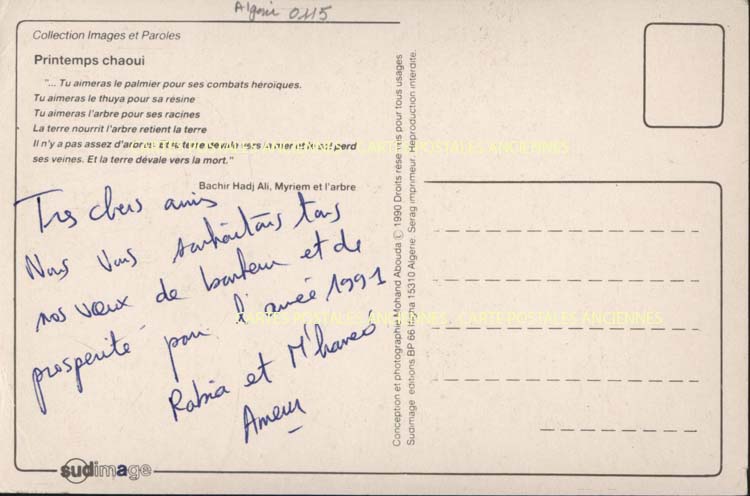 Algérie 0115
Collection Images et Paroles
Printemps chaoui
"... Tu aimeras le palmier pour ses combats héroïques.
Tu aimeras le thuya pour sa résine
Tu aimeras l'arbre pour ses racines
La terre nourrit l'arbre retient la terre
Il n'y a pas assez d'arbres. Et la terre dévale vers la mer et le sol perd
ses veines. Et la terre dévale vers la mort."
Bachir Hadj Ali, Myriem et l'arbre
Très chers amis
Nous Vous souhaitons tous
nos vœux de bonheur et de
prosperité pour l'année 1991
Rabia et M'hamed
Ameur
Conception et photographie Mohand Abouda © 1990 Droits réservés pour tous usages
Sudimage editions BP 66 Ifigha 15310 Algerie. Serag imprimeur. Reproduction interdite.
CARTES POSTALES ANCIENNES CARTE POSTALES ANCIENNES
CARTES POSTALES ANCIENNES CARTE POSTALES ANCIENNES
sudimage